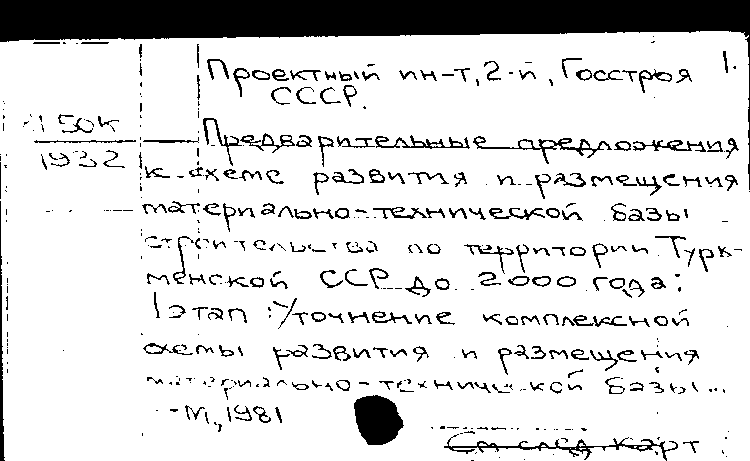 Проектный ин-т, 2-й, Госстроя 1.
СССР.
150к
1932
Предварительные предложения
к схеме развития и размещения
материально-технической базы
строительства по территории Турк-
менской ССР до 2000 года:
I этап: Уточнение комплексной
схемы развития и размещения
материально-технической базы...
-М., 1981
См след. карт